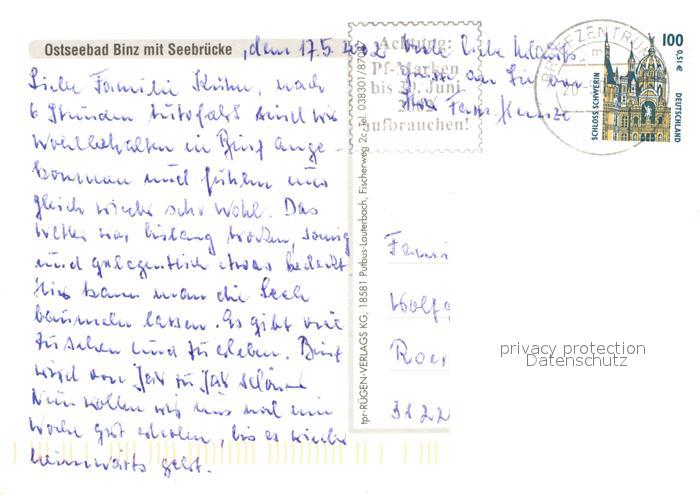 Ostseebad Binz mit Seebrücke , den 17.5.
Liebe Familie Kühn, nach
6 Stunden Autofahrt sind wir
wohlbehalten in Binz ange-
kommen und fühlen uns
gleich wieder sehr wohl. Das
Wetter war bislang trocken, sonnig
und gelegentlich etwas bedeckt
Hier kann man die Seele
baumeln lassen. Es gibt viel
zu sehen und zu erleben. Binz
wird von Jahr zu Jahr schöner
Nun wollen wir uns noch eine
Woche gut erholen, bis es wieder
heimwärts geht.
Viele liebe Urlaubs-
grüsse an Sie von
Ihrer Fam.
Achtung:
Pf-Marken
bis 30. Juni
aufbrauchen!
BRIEFZENTRUM
100
0,51 €
SCHLOSS SCHWERIN
DEUTSCHLAND
tpr-RÜGEN-VERLAGS KG, 18581 Putbus-Lauterbach, Fischerweg 2c, Tel. 038301/87047
Fami
Wolfg
3122
privacy protection
Datenschutz